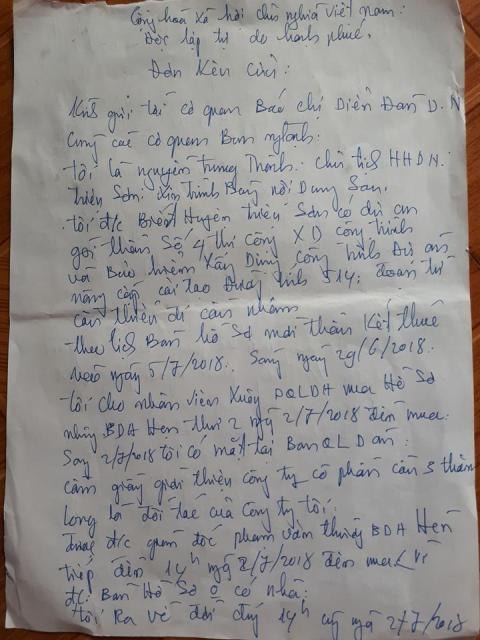 Cộng hoà xã hội chủ nghĩa việt nam.
Độc lập tự do hạnh phúc.
Đơn Kêu Cứu:
Kính gửi tới cơ quan Báo chí Diễn Đàn D.N
cùng các cơ quan Ban nghành:
Tôi là nguyễn trung Thành. chủ tịch HHDN.
Triệu Sơn: xin trình Bày nội Dung sau.
tôi đ/c Biết Huyện triệu Sơn có dự án
gói thầu Số 4 thi công XD công trình
và Bảo hiểm Xây Dựng công trình Dự án
nâng cấp cải tạo Đường tỉnh 514; đoạn từ
cầu thiều đi cầu nhâm
theo lịch Bán hồ Sơ mời thầu Kết thúc
vào ngày 5/7/2018. Sáng ngày 29/6/2018.
tôi cho nhân viên Xuống BQLDA mua Hồ Sơ
nhưng BDA Hẹn thứ 2 ngày 2/7/2018 đến mua:
Sáng 2/7/2018 tôi có mặt tại Ban QL D án:
cầm giấy giới thiệu công ty cổ phần cầu 3 thăng
long là đối tác của công ty tôi:
được đ/c giám đốc phạm văn BDA Hẹn
tiếp đến 14h ngày 2/7/2018 đến mua Vì
đ/c Bán Hồ Sơ o có nhà:
tôi Ra về đợi đúng 14h ngày 2/7/2018